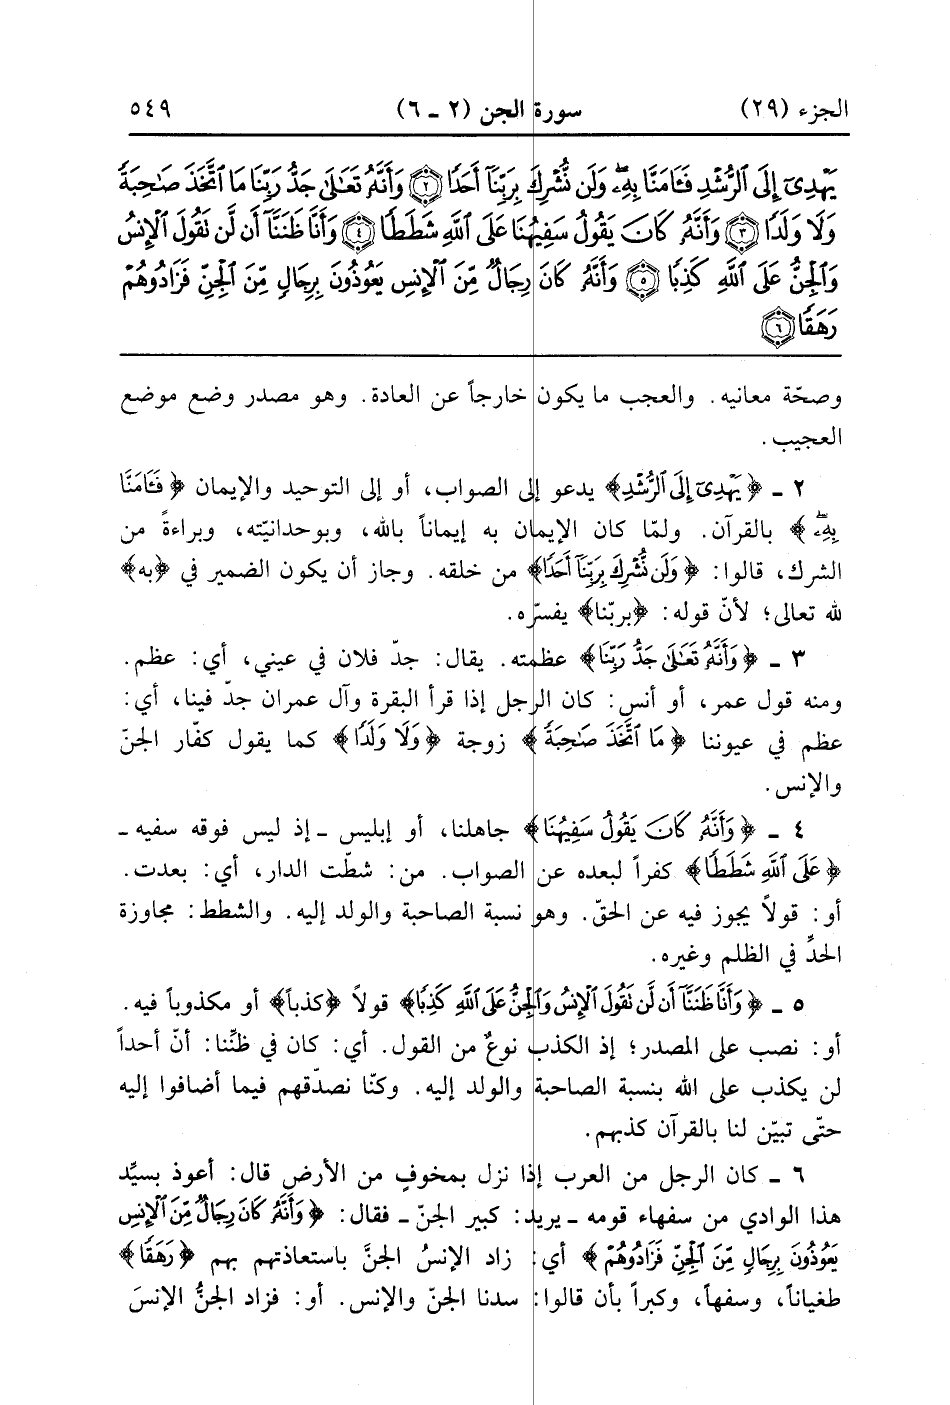 الجزء (٢٩) سورة الجن (٢ ـ ٦) ٥٤٩
يَهْدِىٓ إِلَى ٱلرُّشْدِ فَـَٔامَنَّا بِهِۦ ۖ وَلَن نُّشْرِكَ بِرَبِّنَآ أَحَدًا ﴿٢﴾ وَأَنَّهُۥ تَعَـٰلَىٰ جَدُّ رَبِّنَا مَا ٱتَّخَذَ صَـٰحِبَةً
وَلَا وَلَدًا ﴿٣﴾ وَأَنَّهُۥ كَانَ يَقُولُ سَفِيهُنَا عَلَى ٱللَّهِ شَطَطًا ﴿٤﴾ وَأَنَّا ظَنَنَّآ أَن لَّن نَقُولَ ٱلْإِنسُ
وَٱلْجِنُّ عَلَى ٱللَّهِ كَذِبًا ﴿٥﴾ وَأَنَّهُۥ كَانَ رِجَالٌ مِّنَ ٱلْإِنسِ يَعُوذُونَ بِرِجَالٍ مِّنَ ٱلْجِنِّ فَزَادُوهُمْ
رَهَقًا ﴿٦﴾
وصحّة معانيه. والعجب ما يكون خارجاً عن العادة. وهو مصدر وضع موضع
العجيب.
٢ ـ ﴿يَهْدِىٓ إِلَى ٱلرُّشْدِ﴾ يدعو إلى الصواب، أو إلى التوحيد والإيمان ﴿فَـَٔامَنَّا
بِهِۦ ۖ﴾ بالقرآن. ولمّا كان الإيمان به إيماناً بالله، وبوحدانيّته، وبراءةً من
الشرك، قالوا: ﴿وَلَن نُّشْرِكَ بِرَبِّنَآ أَحَدًا﴾ من خلقه. وجاز أن يكون الضمير في ﴿به﴾
لله تعالى؛ لأنّ قوله: ﴿بربّنا﴾ يفسّره.
٣ ـ ﴿وَأَنَّهُۥ تَعَـٰلَىٰ جَدُّ رَبِّنَا﴾ عظمته. يقال: جدّ فلان في عيني، أي: عظم.
ومنه قول عمر، أو أنس: كان الرجل إذا قرأ البقرة وآل عمران جدّ فينا، أي:
عظم في عيوننا ﴿مَا ٱتَّخَذَ صَـٰحِبَةً﴾ زوجة ﴿وَلَا وَلَدًا﴾ كما يقول كفّار الجنّ
والإنس.
٤ ـ ﴿وَأَنَّهُۥ كَانَ يَقُولُ سَفِيهُنَا﴾ جاهلنا، أو إبليس ـ إذ ليس فوقه سفيه ـ
﴿عَلَى ٱللَّهِ شَطَطًا﴾ كفراً لبعده عن الصواب. من: شطّت الدار، أي: بعدت.
أو: قولاً يجوز فيه عن الحقّ. وهو نسبة الصاحبة والولد إليه. والشطط: مجاوزة
الحدِّ في الظلم وغيره.
٥ ـ ﴿وَأَنَّا ظَنَنَّآ أَن لَّن نَقُولَ ٱلْإِنسُ وَٱلْجِنُّ عَلَى ٱللَّهِ كَذِبًا﴾ قولاً ﴿كذباً﴾ أو مكذوباً فيه.
أو: نصب على المصدر؛ إذ الكذب نوعٌ من القول. أي: كان في ظنِّنا: أنّ أحداً
لن يكذب على الله بنسبة الصاحبة والولد إليه. وكنّا نصدّقهم فيما أضافوا إليه
حتّى تبيّن لنا بالقرآن كذبهم.
٦ ـ كان الرجل من العرب إذا نزل بمخوفٍ من الأرض قال: أعوذ بسيِّد
هذا الوادي من سفهاء قومه ـ يريد: كبير الجنّ ـ فقال: ﴿وَأَنَّهُۥ كَانَ رِجَالٌ مِّنَ ٱلْإِنسِ
يَعُوذُونَ بِرِجَالٍ مِّنَ ٱلْجِنِّ فَزَادُوهُمْ﴾ أي: زاد الإنسُ الجنَّ باستعاذتهم بهم ﴿رَهَقًا﴾
طغياناً، وسفهاً، وكبراً بأن قالوا: سدنا الجنّ والإنس. أو: فزاد الجنُّ الإنسَ